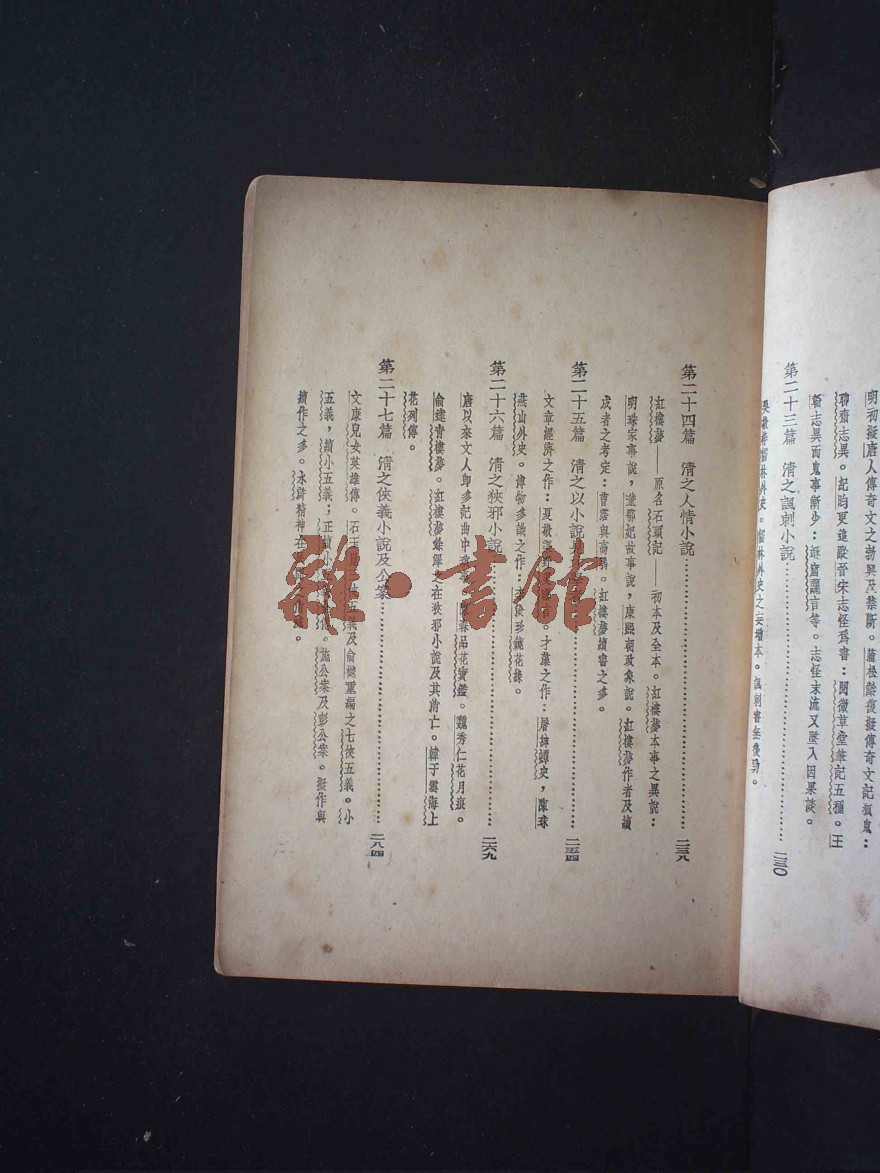 明初擬唐人傳奇文之勃興及禁斷。蒲松齡復擬傳奇文記狐鬼：
聊齋志異。紀昀更追蹤晉宋志怪爲書：閱微草堂筆記五種。王
新志異而鬼事漸少：
等。志怪末流又墜入因果談。
第二十三篇 清之諷刺小說……二三〇
儒林外史。儒林外史之妄增本。諷刺書無後勁。
第二十四篇 清之人情小說……二三九
紅樓夢——原名石頭記——初本及全本。紅樓夢本事之異說：
明珠家事說，董鄂妃故事說，康熙朝政象說。紅樓夢作者及續
成者之考定：曹霑與高鶚。紅樓夢續書之多。
第二十五篇 清之以小說……二五四
文章經濟之作：夏敬渠野。才藻之作：屠紳蟫史，陳球
燕山外史。博物多識之作：李汝珍鏡花緣。
第二十六篇 清之狹邪小說……二六九
唐以來文人即多記曲中。品花寶鑑。魏秀仁花月痕。
俞達青樓夢。紅樓夢餘澤之在狹邪小說及其消亡。韓子雲海上
花列傳。
第二十七篇 清之俠義小說及公案……二八四
文康兒女英雄傳。石玉五義及俞樾重編之七俠五義。小
五義，續小五義；正續小。施公案及彭公案。擬作與
續作之多。水滸精神在。
雜·書館